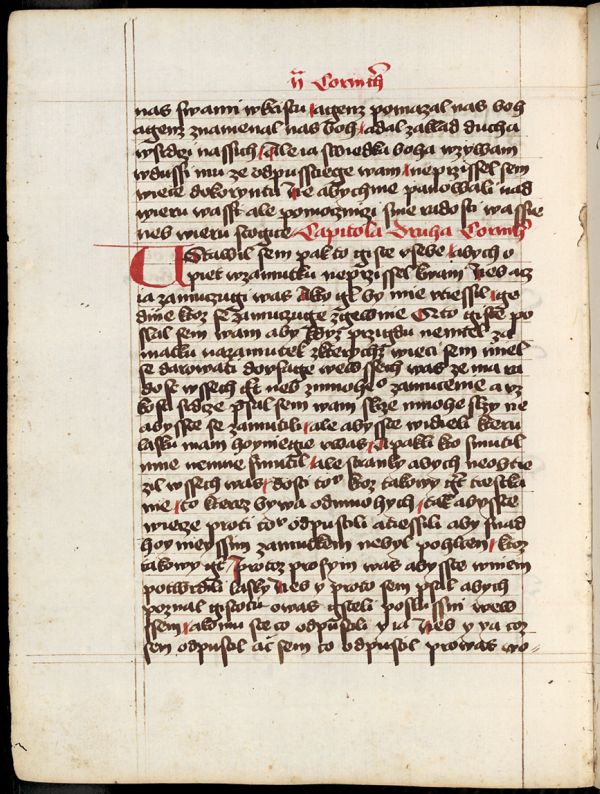 ii Corinth
nas swami wkristu agenz pomazal nas boh
agenz znamenal nas boh adal zaklad ducha
wsrdczi nassich Ale ia swiedka boha wzywam
wdussi mu ze odpusstiege wam neprzissel sem
wiece dokoryntu Ne abychme panowali nad
wieru wassi ale pomocznizi sme radosti wassie
neb wieru stogite Capitola Druha Corinth
Ustawil sem pak to giste vsebe abych o
piet wzamutku neprzissel kwam Neb acz
ia zamuczugi was kto gt by mie vtiessil ge
dine ktoz se zamuczuge zgewmie Orto giste po
slal sem wam aby kdyz przigdu nemiel za
mutku nazamutek zkterychz wieci sem imiel
se darowati dowfage wewssech was ze ma ra
dost wssech gt neb zmnoheo zamucenie a vz
kosti srdcze psal sem wam skrze mnohe slzy ne
abysste se zamutili ale abysste widieli kteru
lasku mam hoyniegie wwas A pakli kto smutil
mne nemne smutil ale stranky abych neobtie
zil wssech was dosti tov ktoz takowy gt trestktu
nie to kterez bywa odmnohych tak abysste
wiecze proti tov odpustili atiessili aby snad
hoyneyssim zamutkem nebyl pohlcen ktoz
takowy gt Protoz prosym was abysste wniem
potwrdili lasky Neb y proto sem psal abych
poznal gistotu owas gsteli poslussni wew
ssem akomu ste co odpustili y ia Neb y ya coz
sem odpustil ac sem co odpustil prowas wo